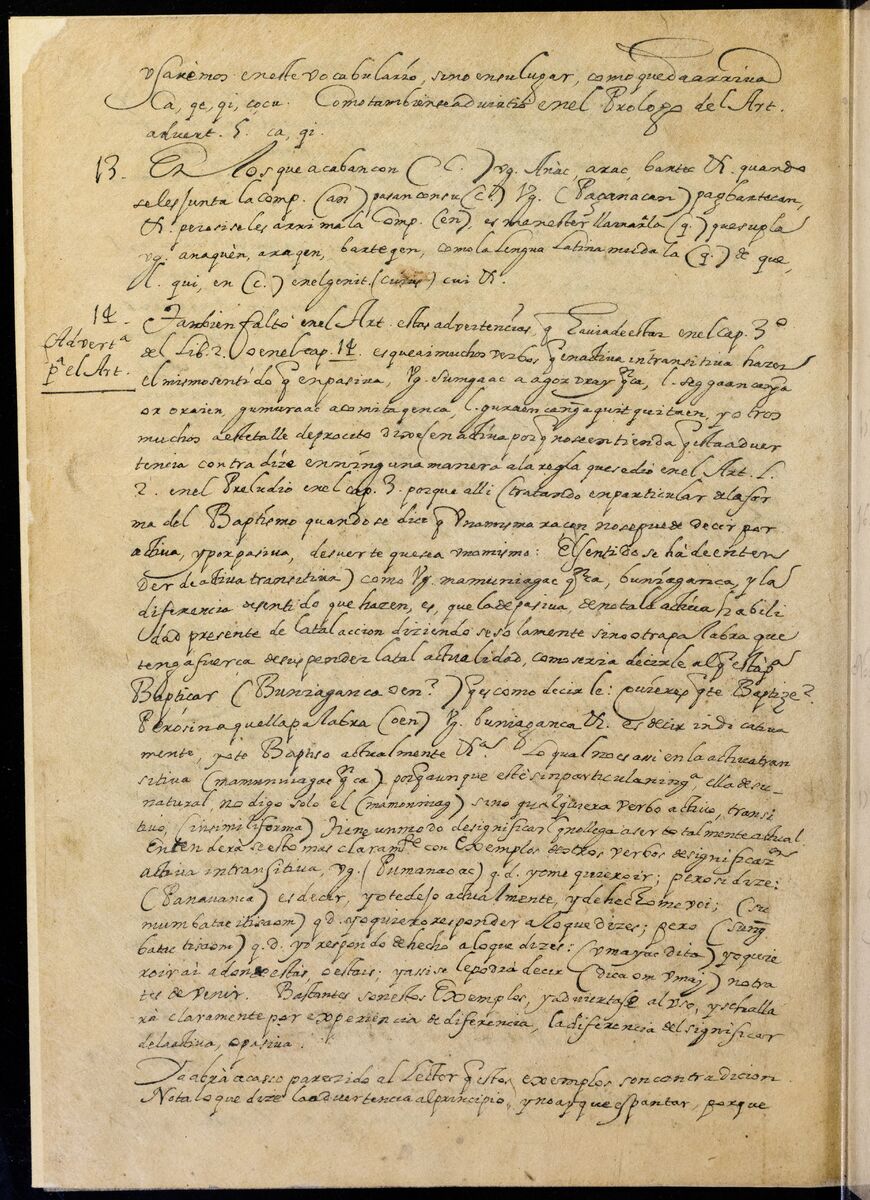 vsaremos eneste vocabulario, sino ensu lugar, como queda arriva
Ca, qe, qi, co, cu. Como tambien se advirtio enel Prologo del Art.
advert. 5. ca, qi.
13. En Los que acaban con (C.) vg. Anac, arac, bartec &. quando
seles junta la comp. (an) pasan con su (C) Vg. (Paçanacan) pagbartecan,
&. pero si seles arrima la Comp. (en), es menester llamarla (q.) que supla
vg. anaquèn, araqen, barteqen, como la lengua Latina muda la (q.) de que,
l. qui, en (c.) enel genit. (cuius) cui &.
14. Tambien faltó enel Art. estas advertencias, q̃ havia de estar enel cap. 3º
Advert.ª
pª el Art.
del Lib. 2. o enel cap. 14. es que ai muchos verbos q̃ en activa intransitiva hazen
el mismo sentido q̃ en pasiva, Vg. sumgaac a agorvray
or oraien, gumuraac acomitagenca, l. guraen canga quitquitaen, y otros
muchos aeste talle
tencia contradize en ninguna manera ala regla que se dio enel Art. L.
2. enel Preludio enel cap. 3. porque alli (tratando en particular dela for
ma del Baptismo quando se dice q̃ Vna misma racen no se puede decir por
activa, y por pasiva, de suerte que sea vno mismo: El sentido se há de enten
der de activa transitiva) como Vg. mamuniagac, buniaganca, y la
diferencia de sentido que hazen, es, que la de pasiva, denota la activa habili
dad presente de la tal accion diziendose solamente sin otra palabra que
tenga fuerça de suspender la tal actualidad, como seria decirle al q̃ está pª
Bapticar (Buniaganca oen?) q̃ es como decirle: quieres q̃ te Baptize?
Pero sin aquella palabra (oen) Vg. buniaganca &. es decir indicativa
mente, yo te Baptiso actualmente &ª. Lo qual no es assi en la activa tran
sitiva (mamunniagac) porq̃ aunque esté sin particula ning.ª, ella de su
natural, no digo solo el (mamonniag) sino qualquiera verbo activo, transi
tivo, (in simili forma) tiene un modo de significar q̃ no llega a ser totalmente actual.
Entenderase esto mas claramᵗᵉ con exemplos de otros verbos de significaz.ᵒⁿ
activa intransitiva, vg. (Pumanaoac) q.d. yo me quiero ir; pero si dize:
(Panavanca) es decir, yo te dejo actualmente, y de hecho me voi; (su
mumbatac itisaom) q.d. yo quiero responder a lo que dizes; pero (sung
batac tisaom) q.d. yo respondo de hecho a lo que dizes: (vmayac dita) yo quie
ro ir ai adonde estás o estais: y assi se le podrà decir (dica om vmaj) no tra
tes de venir. Bastantes son estos Exemplos, y adviertase al vso, y se halla
rà claramente por experiencia de diferencia, la diferencia del significar
dela activa, o pasiva.
Ya abrà acasso parezido al Lector q̃ estos exemplos son contradicion
Nota lo que dize la advertencia al principio, y no ay que espantar, porque